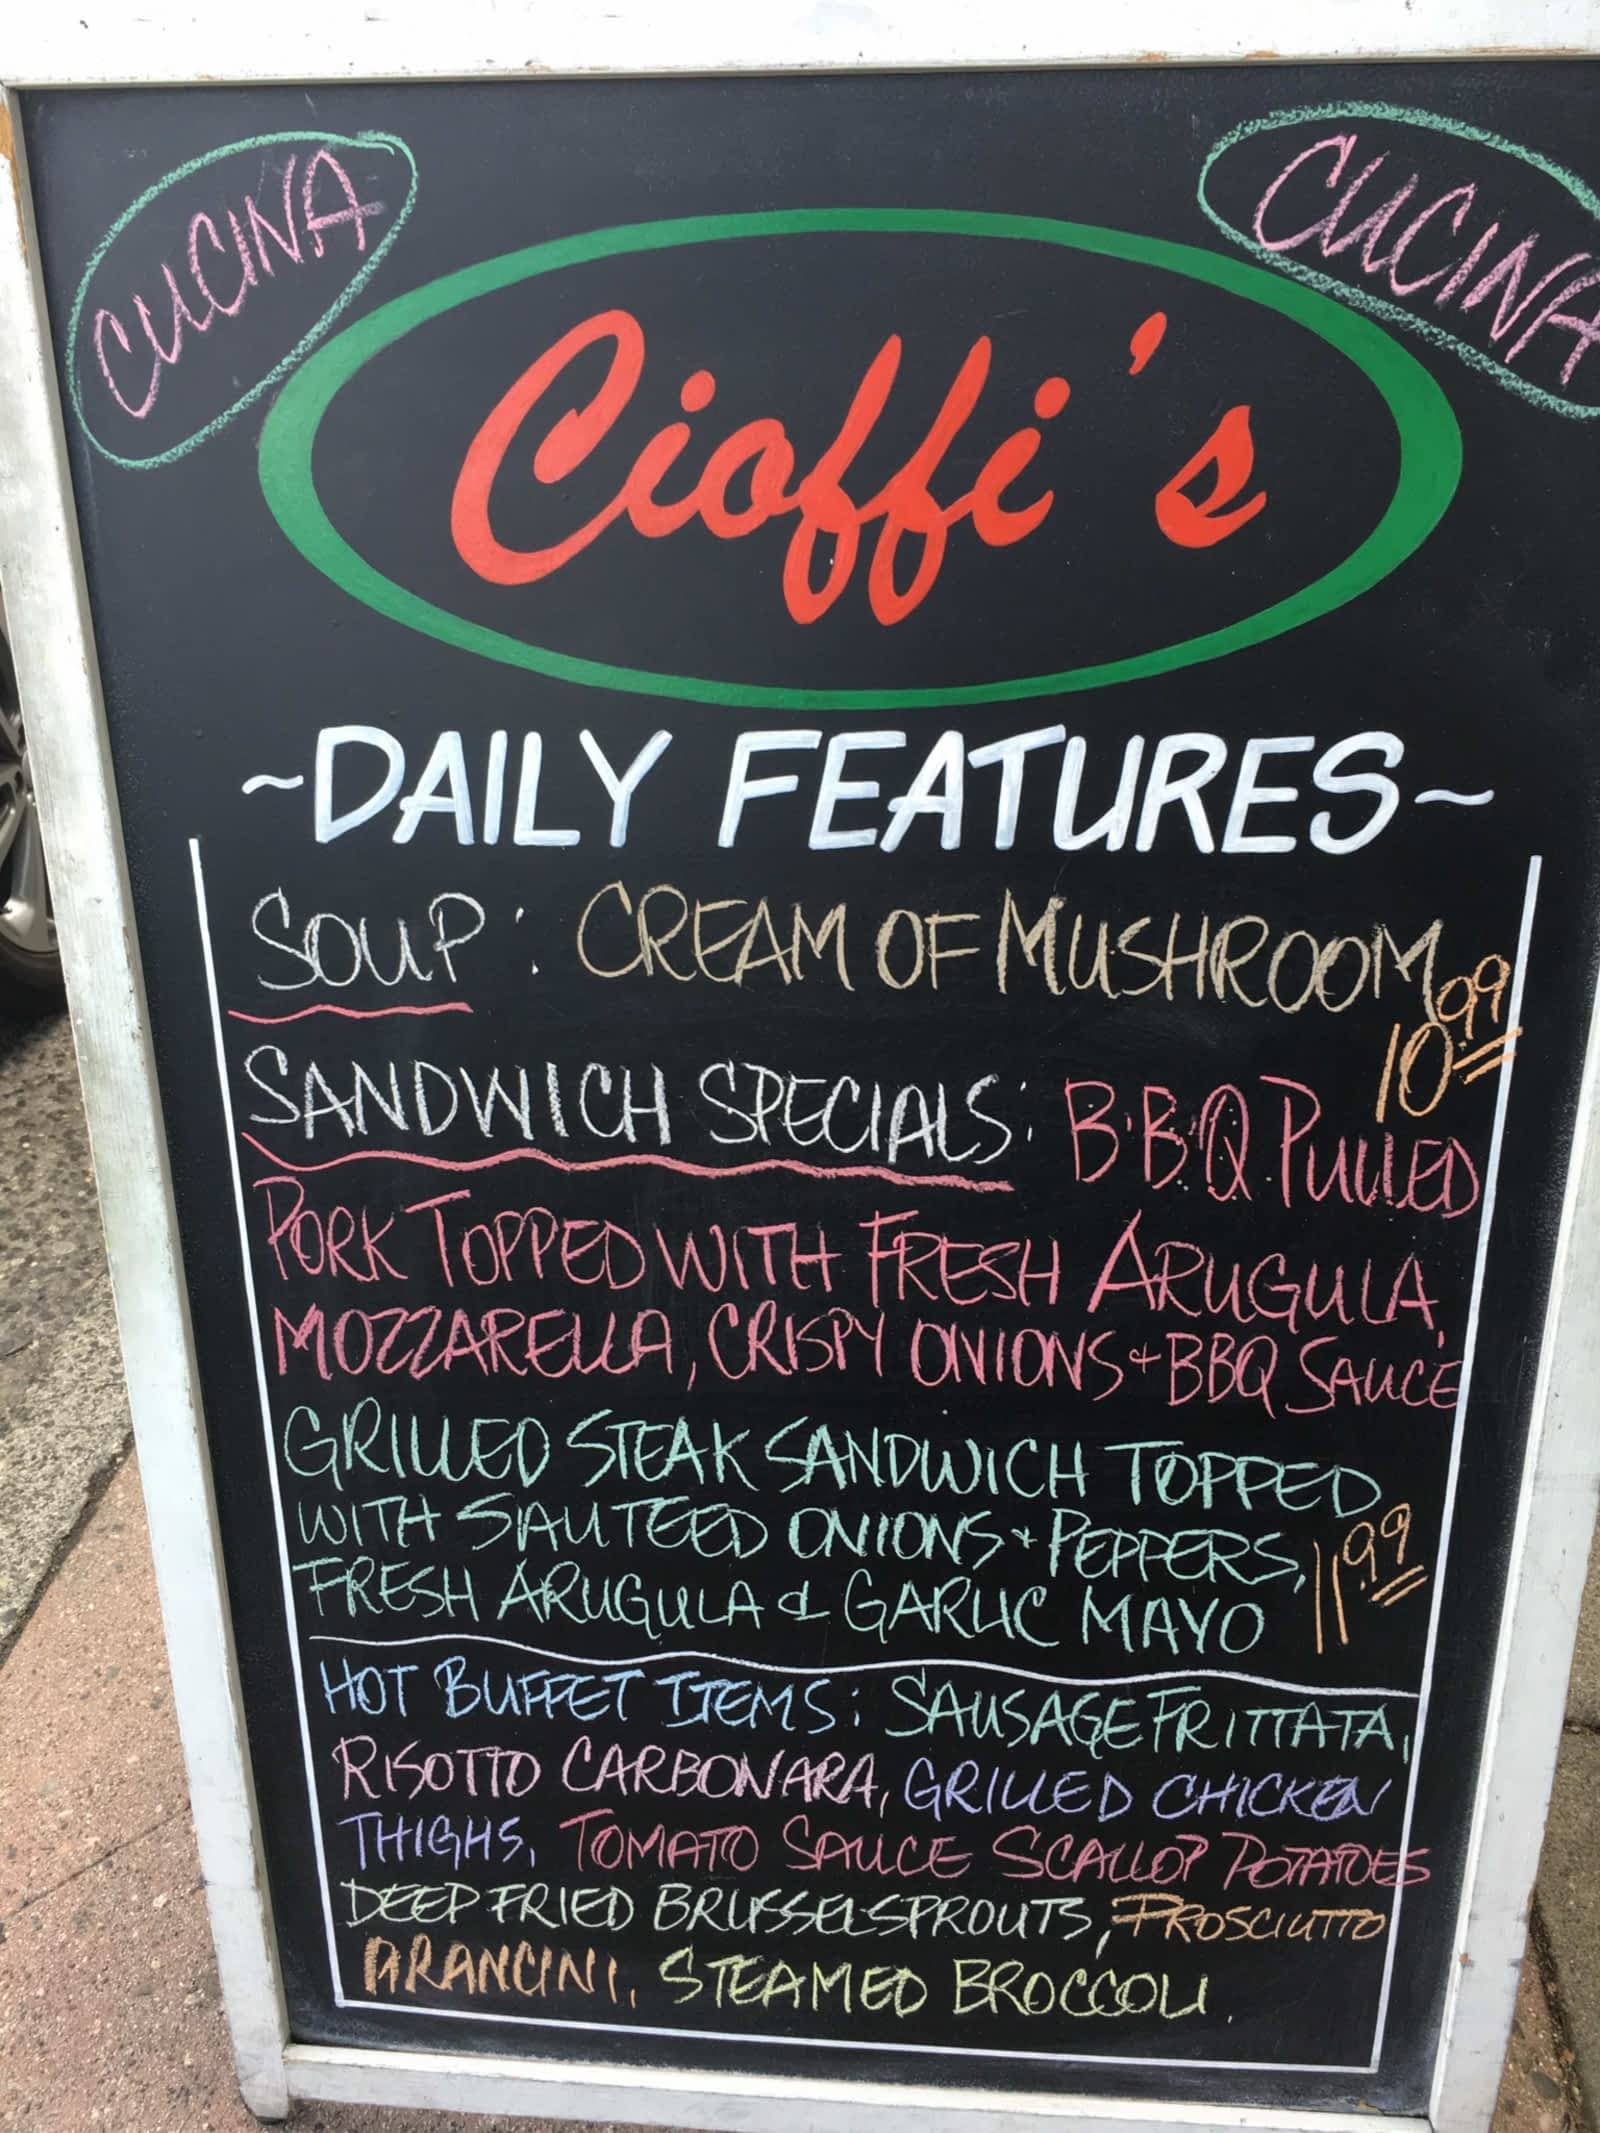 CUCINA
CUCINA
Cioffi's
~DAILY FEATURES~
SOUP: CREAM OF MUSHROOM
10.99
SANDWICH SPECIALS: B.B.Q. PULLED
PORK TOPPED WITH FRESH ARUGULA,
MOZZARELLA, CRISPY ONIONS + BBQ SAUCE
GRILLED STEAK SANDWICH TOPPED
WITH SAUTEED ONIONS + PEPPERS,
FRESH ARUGULA & GARLIC MAYO
11.99
HOT BUFFET ITEMS: SAUSAGE FRITTATA,
RISOTTO CARBONARA, GRILLED CHICKEN
THIGHS, TOMATO SAUCE SCALLOP POTATOES
DEEP FRIED BRUSSELSPROUTS, PROSCIUTTO
ARANCINI, STEAMED BROCCOLI.